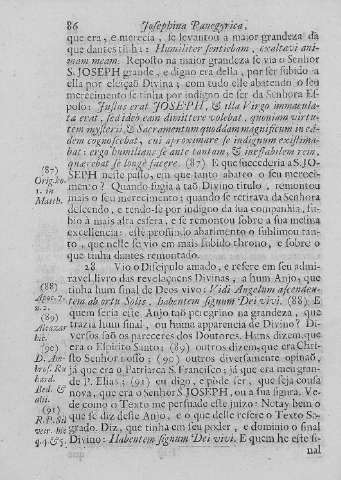 86 Josephina Panegyrica,
que era, e merecia, se levantou a maior grandeza da
que dantes tinha: Humiliter sentiebam, exaltavi ani-
mam meam. Reposto na maior grandeza se via o Senhor
S. JOSEPH grande, e digno era della, por ser subido a
ella por eleiçaõ Divina, com tudo elle abatendo o seu
merecimento se tinha por indigno de ser da Senhora Es-
poso: Justus erat JOSEPH, & illa Virgo immacula-
ta erat, sed ideò eam dimittere volebat, quoniam virtu-
tem mysterii, & Sacramentum quoddam magnificum in eâ-
dem cognoscebat, cui aproximare se indignum existima-
bat: ergo humilians se ante tantam, & ineffabilem rem,
quærebat se longè facere. (87) E que succederia a S. JO-
SEPH neste passo, em que tanto abateo o seu mereci-
mento? Quando fugia a taõ Divino titulo, remontou
mais o seu merecimento; quando se retirava da Senhora
descendo, e tendo-se por indigno da sua companhia, su-
bio à mais alta esfera, e se remontou sobre a sua mesma
excellencia: este profundo abatimento o sublimou tan-
to, que nelle se vio em mais subido throno, e sobre o
que tinha dantes remontado.
(87)
Orig. ho.
1. in
Matth.
28 Vio o Discipulo amado, e refere em seu admi-
ravel livro das revelaçoens Divinas, a hum Anjo, que
tinha hum sinal de Deos vivo: Vidi Angelum ascenden-
tem ab ortu Solis, habentem signum Dei vivi. (88) E
quem seria este Anjo taõ peregrino na grandeza, que
trazia hum sinal, ou huma apparencia de Divino? Di-
versos saõ os pareceres dos Doutores. Huns dizem, que
era o Espirito Santo; (89) outros dizem, que era Chri-
sto Senhor nosso; (90) outros diversamente opinaõ,
já que era o Patriarca S. Francisco; já que era meu gran-
de P. Elias; (91) eu digo, e póde ser, que seja cousa
nova, que era o Senhor S. JOSEPH, ou a sua figura. Ve-
de como o Texto me persuade este juizo: Notay bem o
que se diz deste Anjo, e o que delle refere o Texto Sa-
grado. Diz, que tinha em seu poder, e dominio o sinal
Divino: Habentem signum Dei vivi. E quem he este si-
nal
(88)
Apoc. 7.
n. 2.
(89)
Alcazar
hic.
(90)
D. Am-
bros. Ru
hard.
Bed. &
alii.
(91)
R. P. Sil
veir. hic
q. 4. & 5.